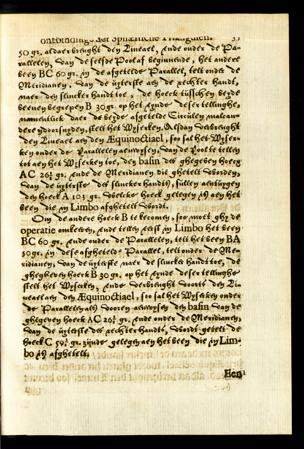 ontbindinge der Sphærische Trianguleu. 33
50 gr. aldaer brenght den Lineael, ende onder de Pa-
rallelen, van de selfde Pool af beginnende, het andere
been BC 60 gr. in de afgetelde Parallel, telt onder de
Meridianen, van de uijterste aen de rechter handt,
naer den slincker handt toe, de hoeck tusschen beyde
beenen begrepen B 30 gr. op het eynde deser tellinghe,
naementlick daer de beyde afgetelde Circulen malcan-
dere doorsnyden, stelt het Wyserken, Alsdan verbrenght
den Lineael aen den Æquinoctiael, soo sal het Wyser-
ken onder de Parallelen aenwysen, van de Pool te tellen
tot aen het Wyserken toe, den basin der ghegheven hoeck
AC 26½ gr. ende de Meridianen die ghetelt worden,
van de uijterste der slincker handt, sullen aenwysen
den hoeck A 103 gr. welcke hoeck gelegen is aen het
been die in Limbo afghetelt wordt.
Om de andere hoeck B te bekomen, soo moet ghy de
operatie omkeeren, ende tellen eerst in Limbo het been
BC 60 gr. ende onder de Parallelen, telt het been BA
50 gr. in dese afghetelde Parallelen, telt onder de Me-
ridianen, van de uijterste naer de slincker handt toe, de
ghegheven hoeck B 30 gr. op het eynde deser tellinghe
stelt het Wyserken, ende verbrenght voorts den Li-
neael aen den Æquinoctiael, soo sal het Wyserken onder
de Parallelen als vooren aenwysen den basin van de
ghegeven hoeck AC 26½ gr. ende onder de Meridianen,
van de uijterste der rechter handt, wordt getelt de
hoeck C 59½ gr. zijnde gelegen aen het been die in Lim-
bo is afghetelt.
Een